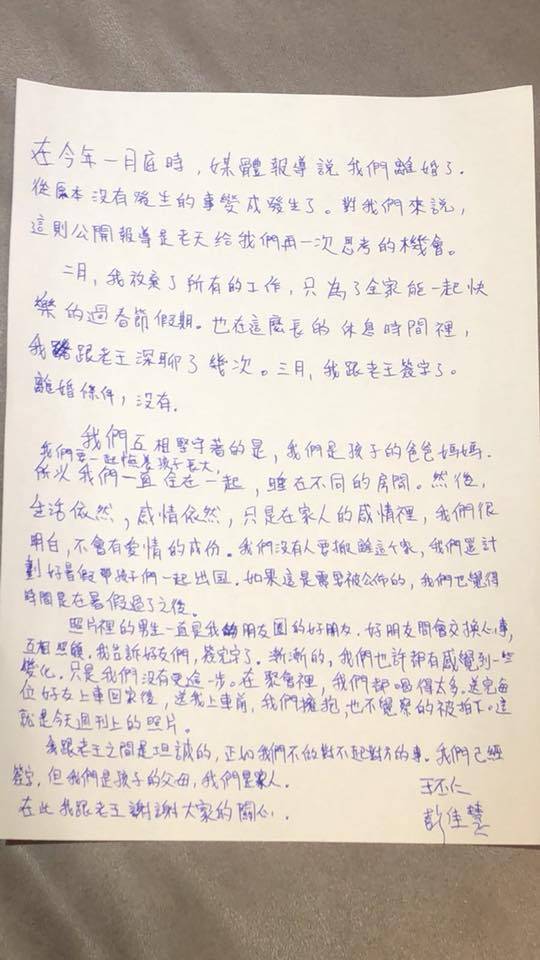 在今年一月底時，媒體報導說我們離婚了.
從原本沒有發生的事變成發生了。對我們來說，
這則公開報導是老天給我們再一次思考的機會。
二月，我放棄了所有的工作，只為了全家能一起快
樂的過春節假期。也在這麼長的休息時間裡，
我跟老王深聊了幾次。三月，我跟老王簽字了。
離婚條件，沒有.
我們互相堅守著的是，我們是孩子的爸爸媽媽.
我們要一起陪著孩子長大,
所以我們一直住在一起，睡在不同的房間。然後，
生活依然，感情依然，只是在家人的感情裡，我們很
明白，不會有愛情的成份。我們沒有人要搬離這個家，我們還計
劃好暑假帶孩子們一起出国。如果這是需要被公佈的，我們也覺得
時間是在暑假過了之後。
照片裡的男生一直是我朋友圈的好朋友.好朋友間會交換心事,
互相照顧.我告訴好友們，簽完字了.漸漸的，我們也許都有感覺到一些
變化.只是我們沒有更進一步。在聚會裡，我們都喝得太多.送完每
位好友上車回家後，送我上車前，我們擁抱,也不覺察的被拍下.這
就是今天週刊上的照片。
我跟老王之間是坦誠的，正如我們不做對不起對方的事.我們已經
簽字，但我們是孩子的父母，我們是家人.
王丕仁
在此我跟老王謝謝大家的關心.
彭佳慧